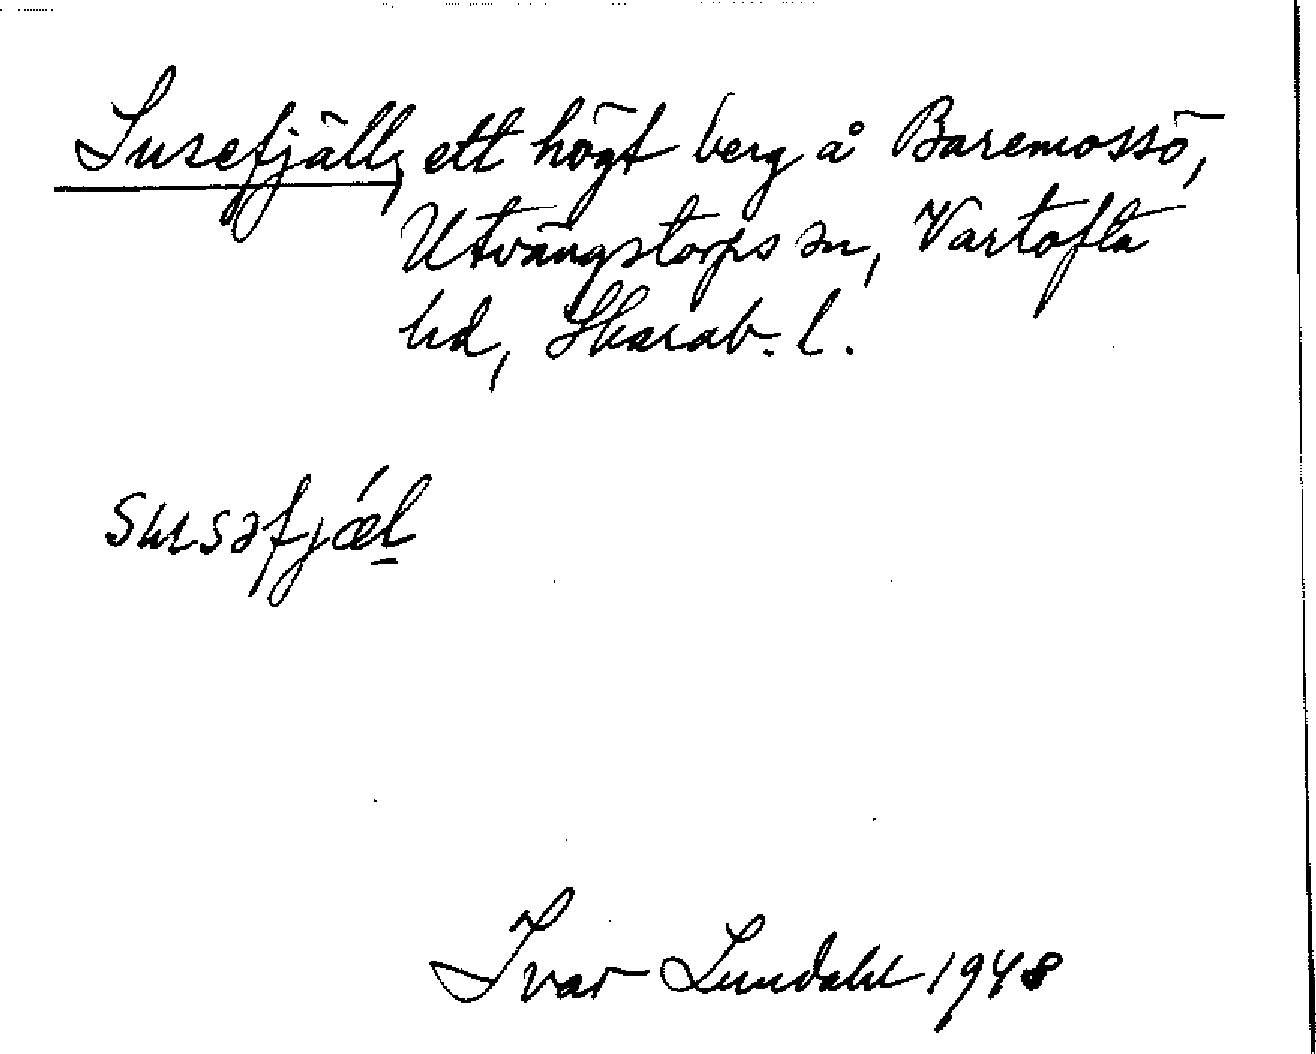 Susefjäll, ett högt berg å Baremossö,
Utvängstorps sn, Vartofta
hd, Skarab. l.
susəfjǽl
Ivar Lundahl 1948